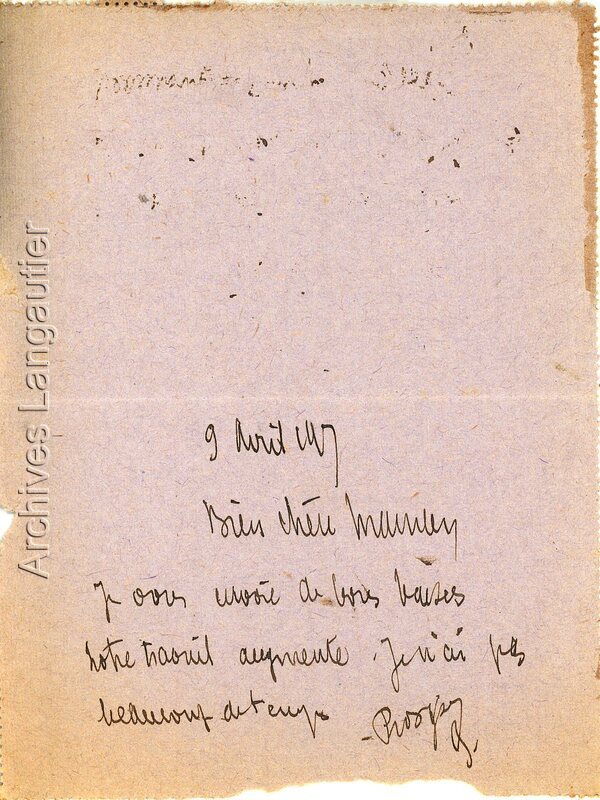 9 Avril 1917
Bien chère Maman
Je vous envoie de bons baisers
notre travail augmente. Je n'ai pas
beaucoup de temps Prosper
Archives Langautier